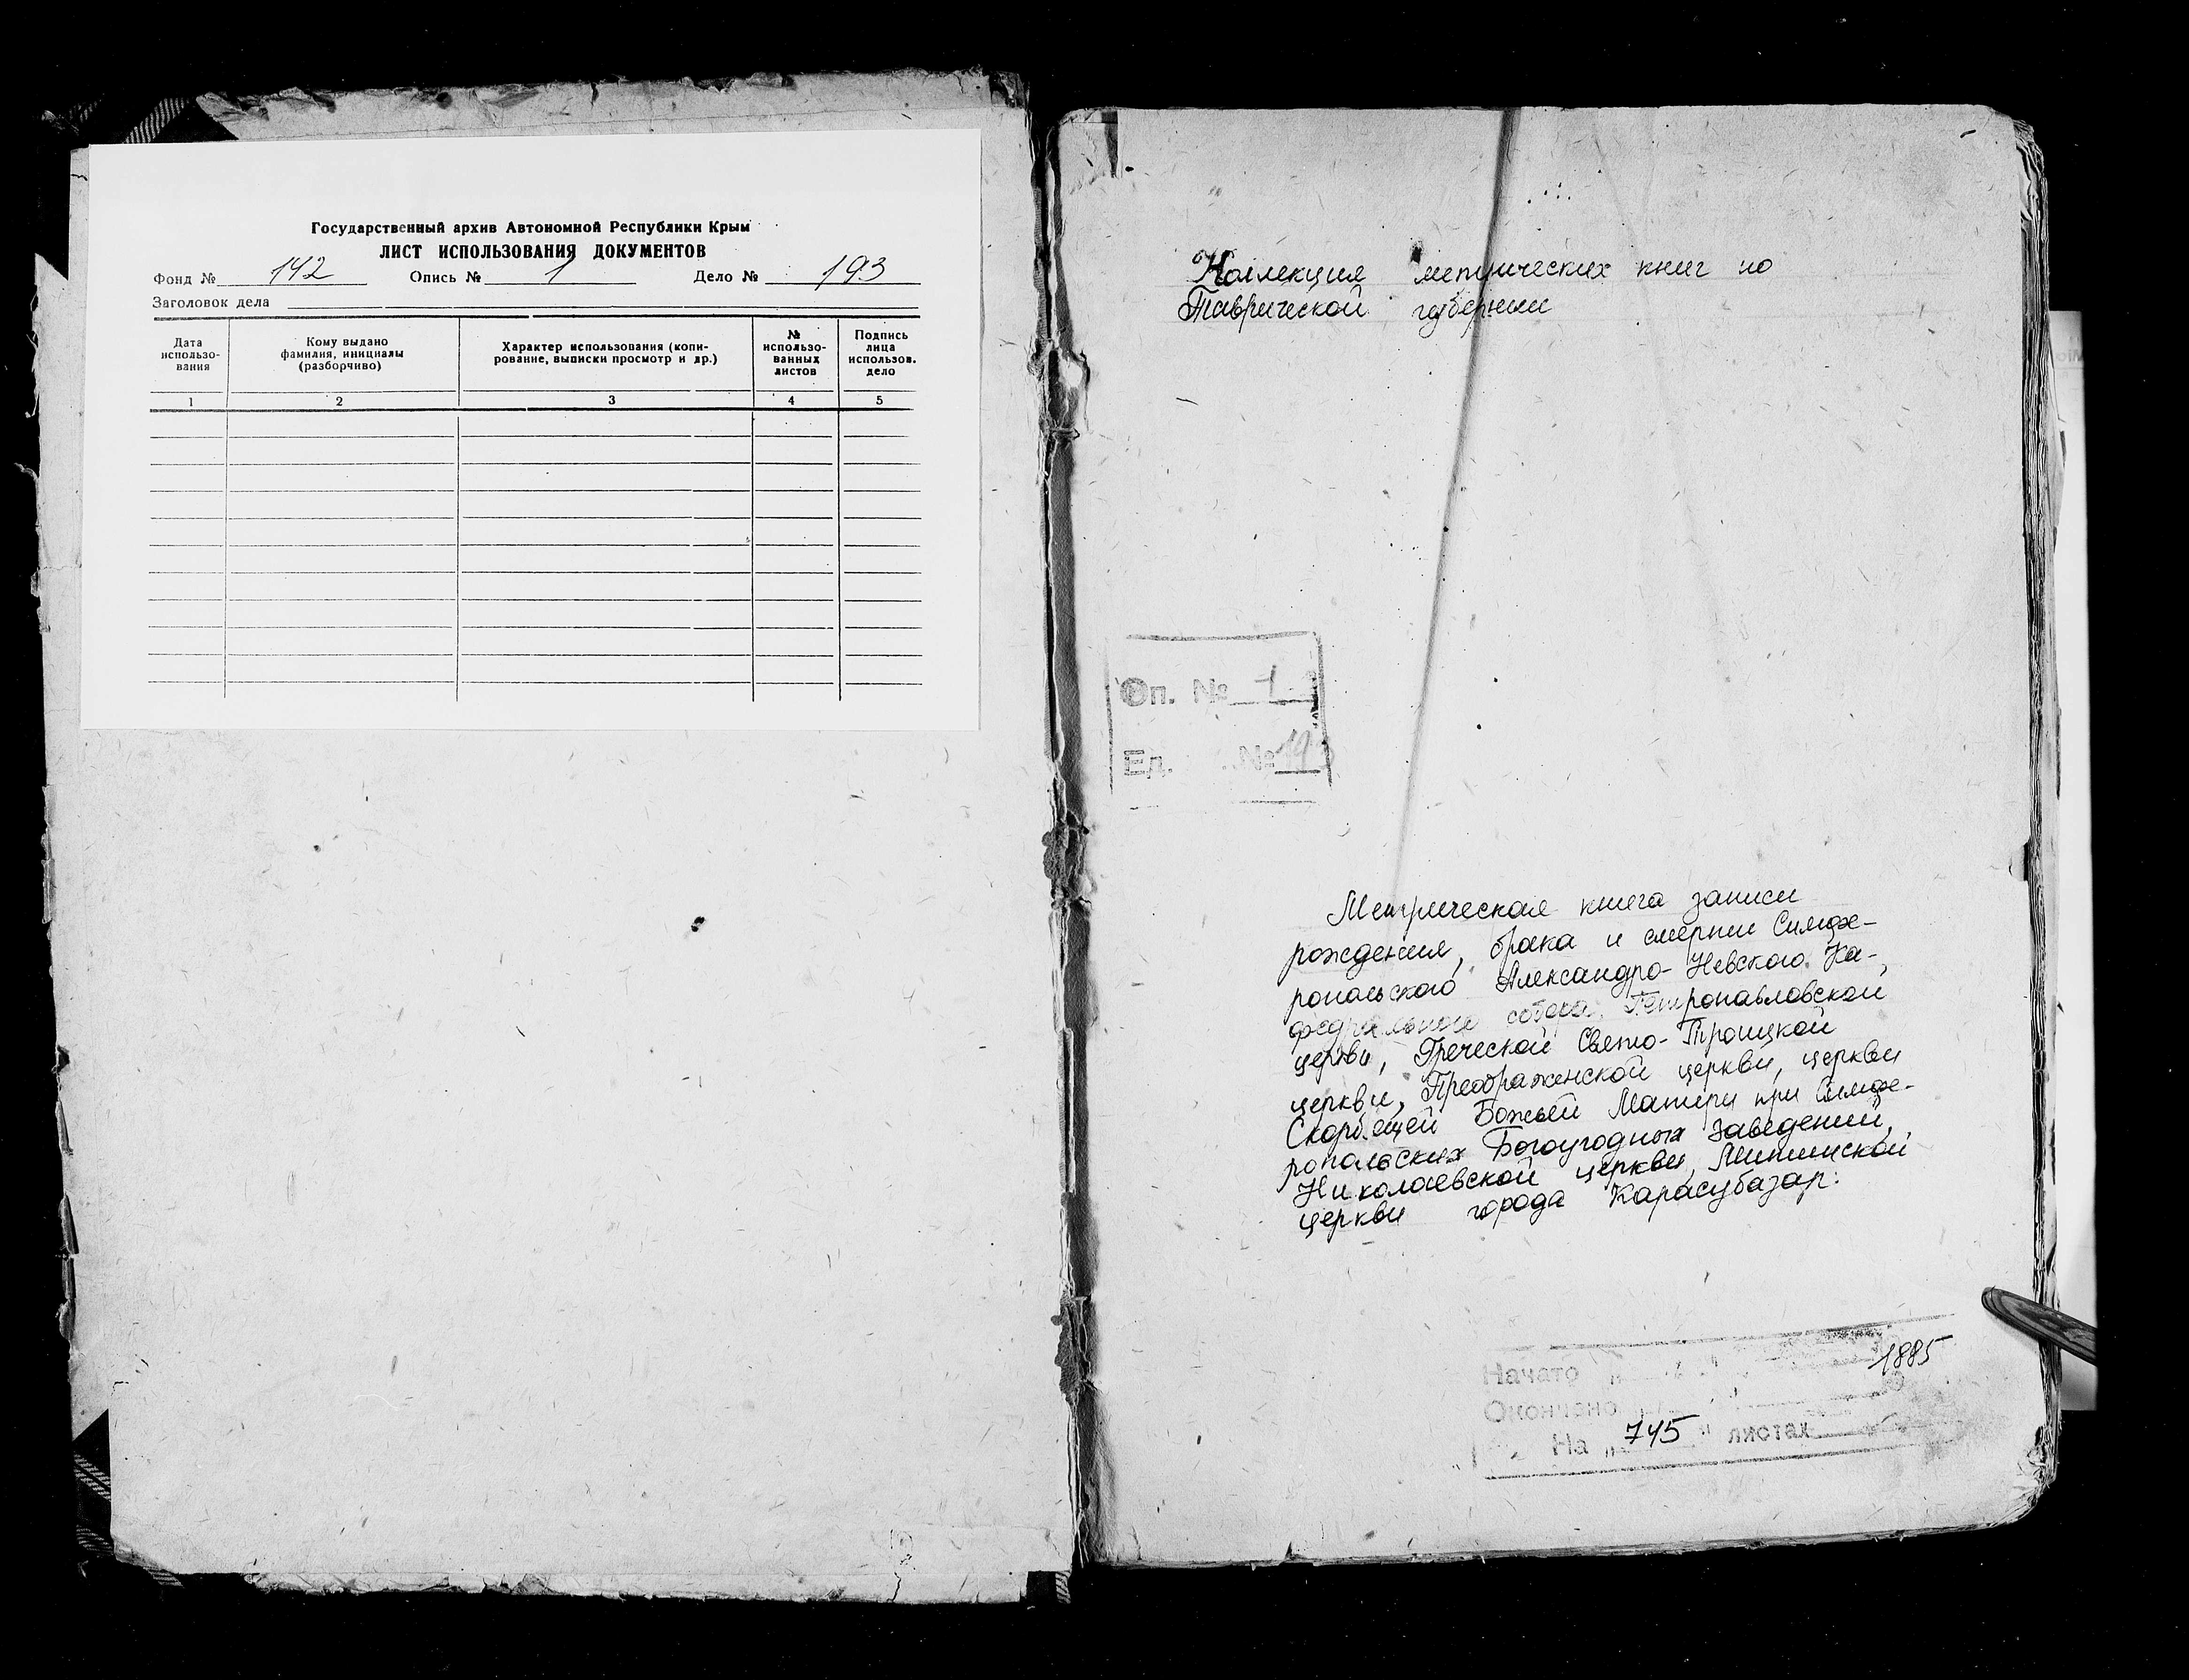 Государственный архив Автономной Республики Крым
ЛИСТ ИСПОЛЬЗОВАНИЯ ДОКУМЕНТОВ
Фонд № 142 Опись № 1 Дело № 193
Заголовок дела
Дата использо-вания
Кому выдано фамилия, инициалы (разборчиво)
Характер использования (копи-рование, выписки просмотр и др.)
№ использо-ванных листов
Подпись лица использов. дело
1 2 3 4 5
Коллекция метрических книг по
Таврической губернии
Оп. № 1
Ед. № 193
Метрическая книга записи
рождения, брака и смерти Симфе-
ропольского Александро-Невского Ка-
федрального собора, Петропавловской
церкви, Греческой Свято-Троицкой
церкви, Преображенской церкви, церкви
Скорбящей Божьей Матери при Симфе-
ропольских Богоугодных заведений,
Николаевской церкви,
церкви города Карасубазар.
Начато 1885
Окончено
На „ 745 " листах